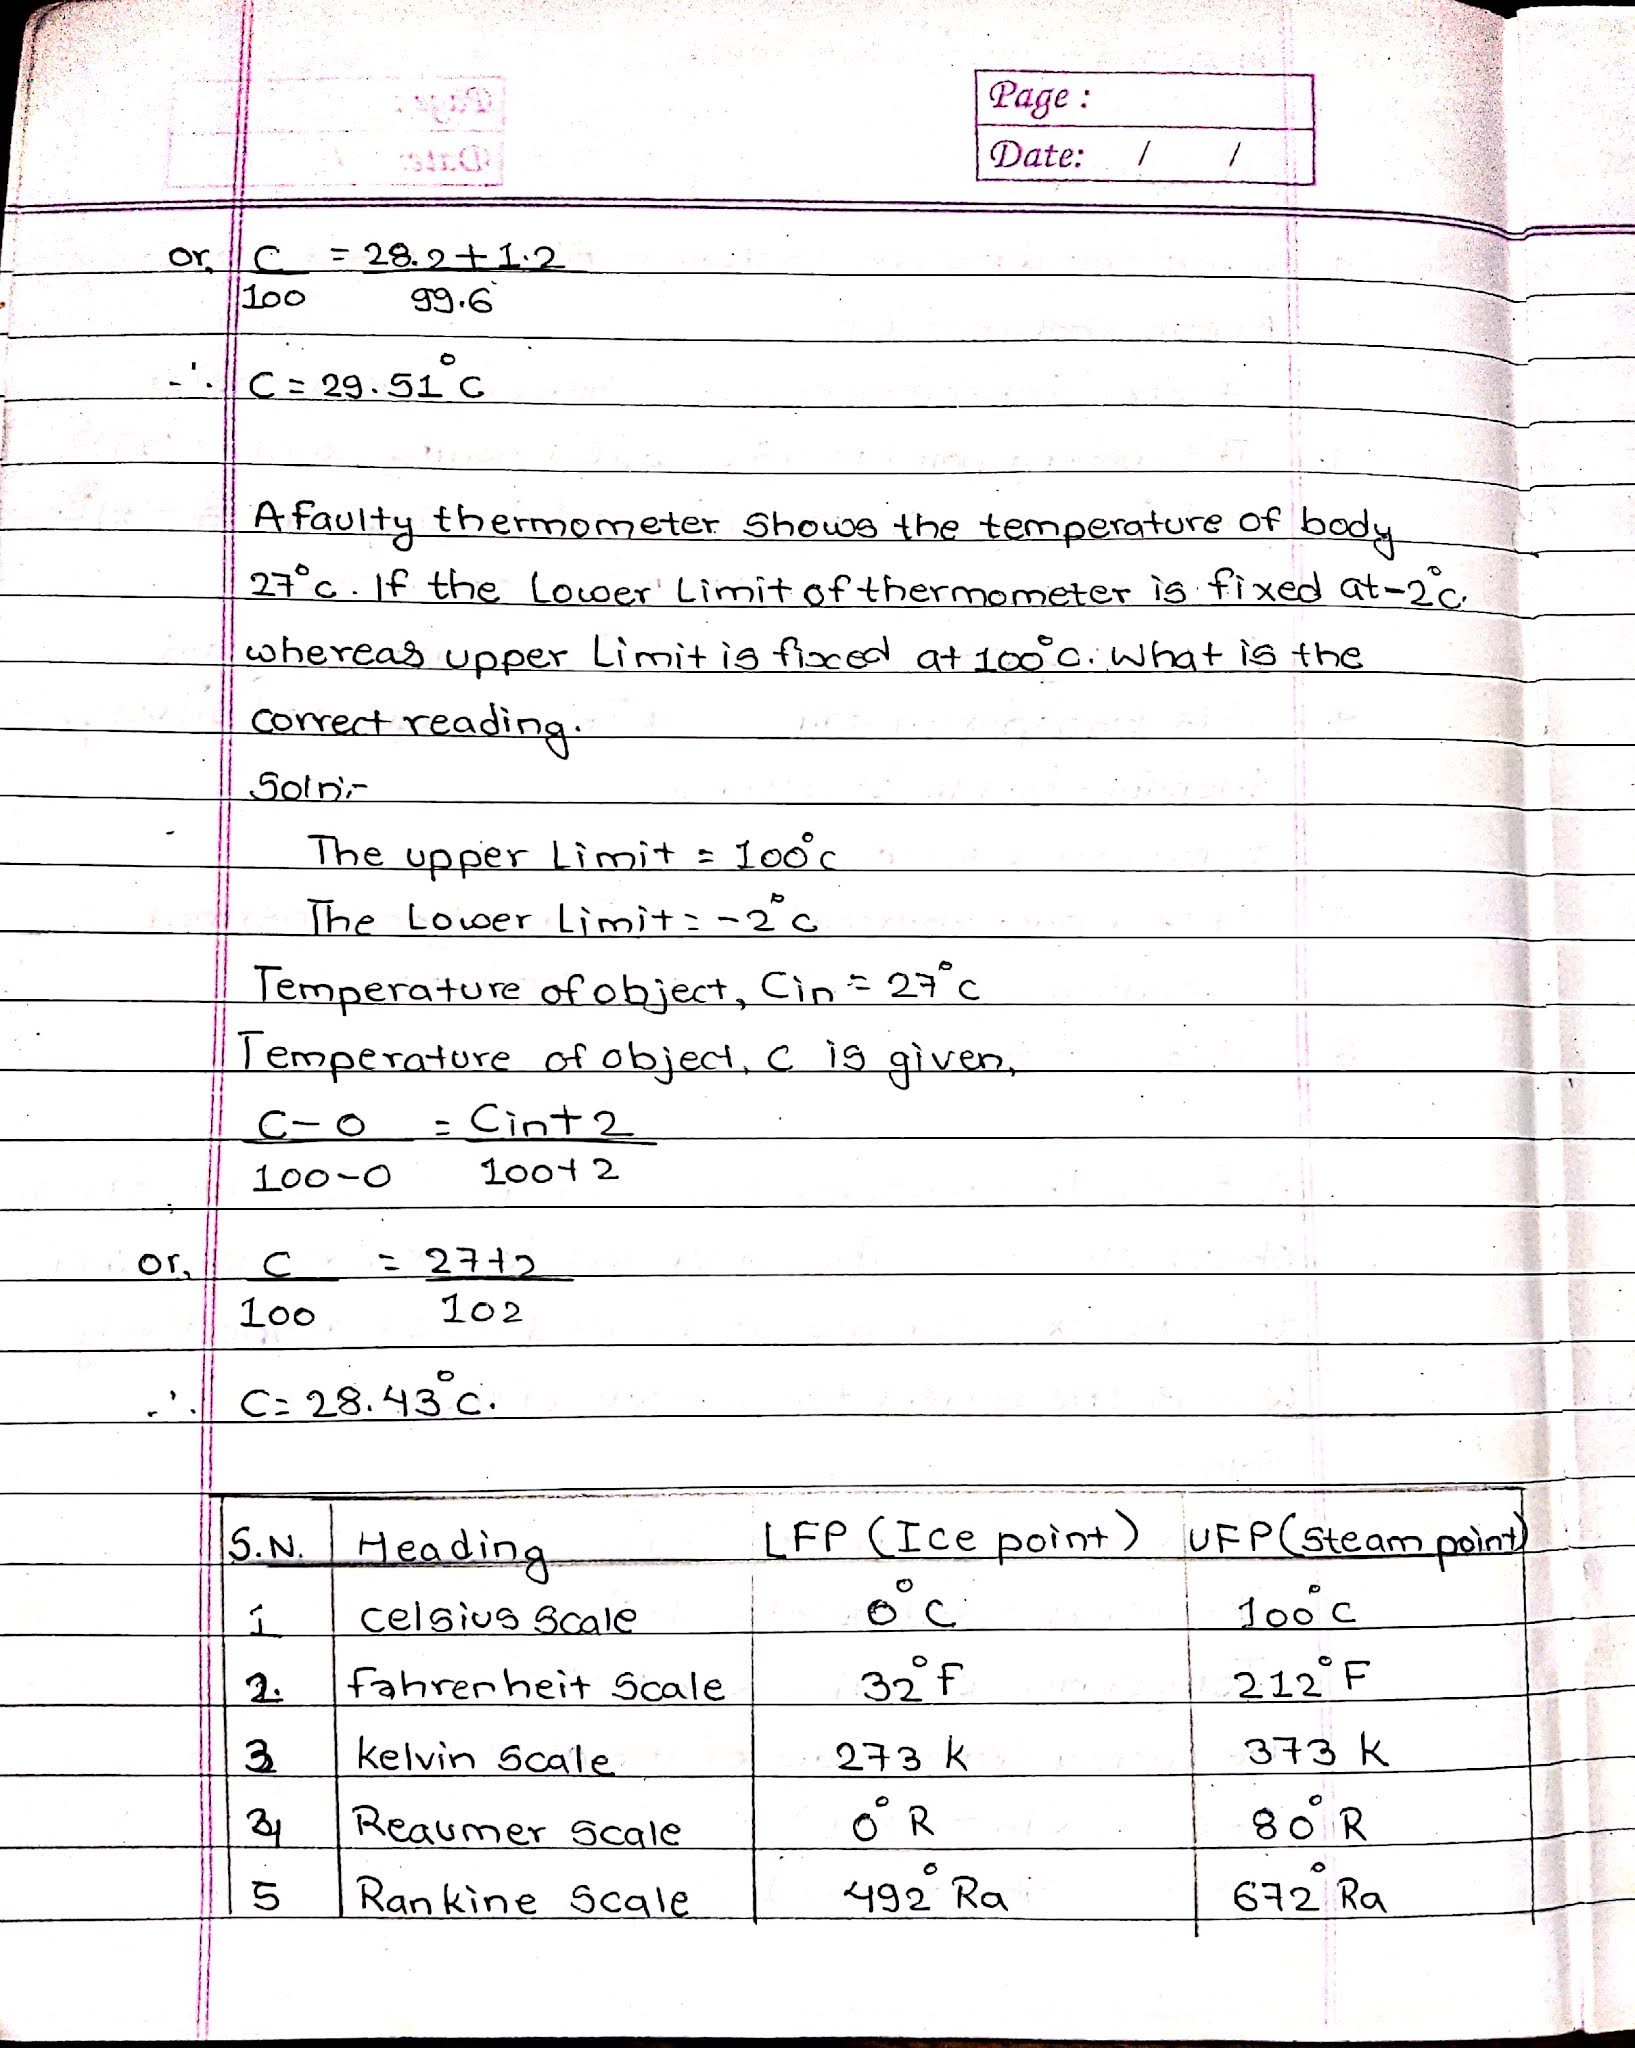 Page :
Date: / /
or, C/100 = 28.2+1.2/99.6
∴ C = 29.51°C
A faulty thermometer shows the temperature of body
27°C. If the Lower Limit of thermometer is fixed at -2°C.
whereas upper Limit is fixed at 100°C. What is the
correct reading.
Soln:-
The upper Limit = 100°C
The Lower Limit = -2°C
Temperature of object, Cin = 27°C
Temperature of object, C is given,
C-0/100-0 = Cin+2/100+2
or, C/100 = 27+2/102
∴ C = 28.43°C.
S.N. Heading LFP (Ice point) UFP (Steam point)
1 Celsius Scale 0°C 100°C
2. Fahrenheit Scale 32°F 212°F
3 Kelvin Scale 273 K 373 K
4 Reaumer Scale 0°R 80°R
5 Rankine Scale 492°Ra 672°Ra